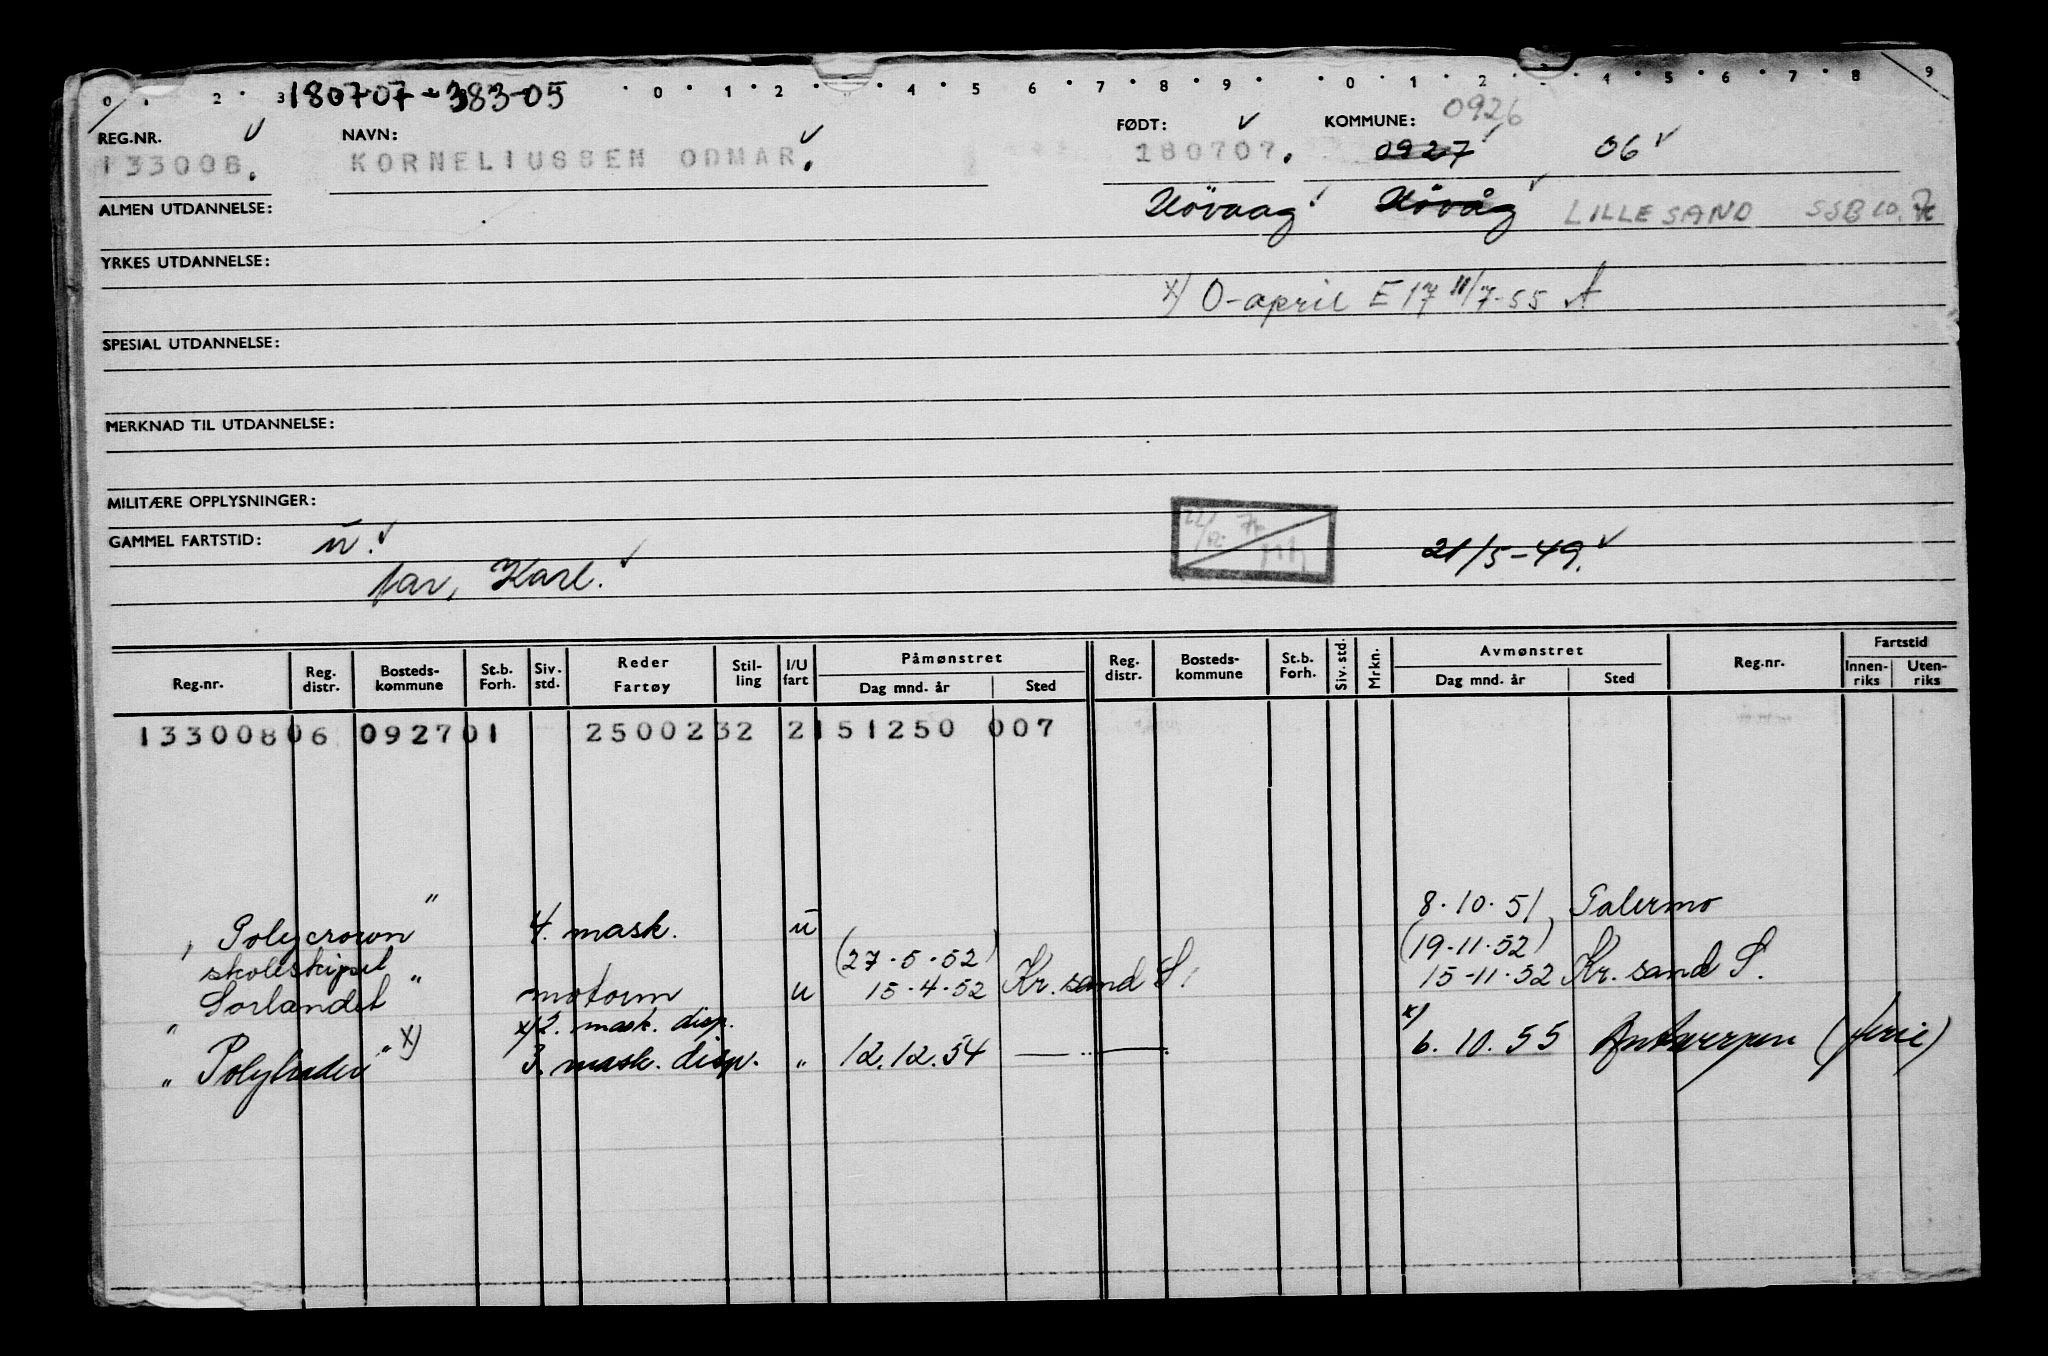 180707-383-05
0 2 3 0 1 2 4 5 6 7 8 9 0 1 2 3 4 5 6 7 8 9
REG.NR. NAVN: FØDT: KOMMUNE: 0926
133008. KORNELIUSSEN ODMAR. 180707. 0927 06
ALMEN UTDANNELSE: Høvaag Høvåg LILLESAND SSB 10.
YRKES UTDANNELSE:
x) O-april E 17 11/7-55 A
SPESIAL UTDANNELSE:
MERKNAD TIL UTDANNELSE:
MILITÆRE OPPLYSNINGER:
GAMMEL FARTSTID: u. 21/5-49.
far, Karl.
Reg.nr. Reg. distr. Bosteds-kommune St.b. Forh. Siv. std. Reder Fartøy Stil-ling I/U fart Påmønstret Dag mnd. år Sted Reg. distr. Bosteds-kommune St.b. Forh. Siv. std. Mrkn. Avmønstret Dag mnd. år Sted Reg.nr. Fartstid Innen-riks Uten-riks
133008 06 0927 01 25002 32 2 151250 007
" Polycrown 4. mask. u 8.10.51, Palermo
skoleskipet (27.5.52) (19-11-52)
Sørlandet " motorm u 15.4.52 Kr.sand S. 15-11-52 Kr.sand S.
" x) x) 2. mask. disp. x)
" Polytrader " 3. mask. disp. " 12.12.54 — " — 6.10.55 Antwerpen (ferie)